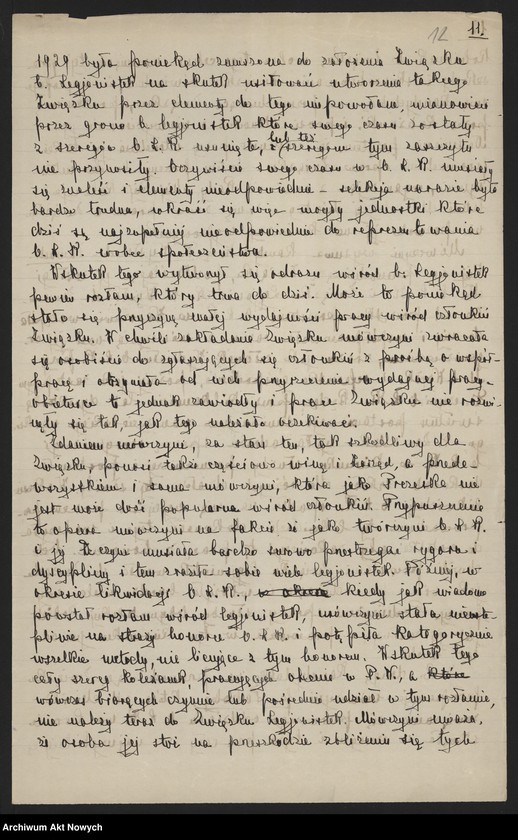 12 11.
1929 była poniekąd zmuszona do założenia Związku
b. legjonistek na skutek usiłowań utworzenia takiego
Związku przez elementy do tego niepowołane, mianowicie
przez grono b. legjonistek które swego czasu zostały
z szeregów O.L.K. usunięte, lub też szeregom tym zaszczytu
nie przynosiły. Oczywiście swego czasu w O.L.K. musiały
się znaleźć i elementy nieodpowiednie – selekcja narazie była
bardzo trudna, wkraść się więc mogły jednostki które
dziś są najzupełniej nieodpowiednie do reprezentowania
O.L.K. wobec społeczeństwa.
Wskutek tego wytworzył się odrazu wśród b. legjonistek
pewien rozłam, który trwa do dziś. Może to poniekąd
stało się przyczyną małej wydajności pracy wśród członkiń
Związku. W chwili zakładania Związku mówczyni zwracała
się osobiście do zgłaszających się członkiń z prośbą o współ-
pracę i otrzymała od nich przyrzeczenie wydajnej pracy –
obietnice te jednak zawiodły i prace Związku nie rozwi-
nęły się tak, jak tego należało oczekiwać.
Zdaniem mówczyni, za stan ten, tak szkodliwy dla
Związku, ponosi także częściowo winę i Zarząd, a przede-
wszystkiem i sama mówczyni, która jako Prezeska nie
jest może dość popularna wśród członkiń. Przypuszczenie
to opiera mówczyni na fakcie że jako twórczyni O.L.K.
i jej musiała bardzo surowo przestrzegać rygoru i
dyscypliny i tem zraziła sobie wiele legjonistek. Później, w
okresie likwidacji O.L.K., w okresie kiedy jak wiadomo
powstał rozłam wśród legjonistek, mówczyni stała nieustę-
pliwie na straży honoru O.L.K. i potępiła kategorycznie
wszelkie metody, nie licujące z tym honorem. Wskutek tego
cały szereg koleżanek, pracujących obecnie w P.W., a które
wówczas biorących czynnie lub pośrednio udział w tym rozłamie,
nie należy teraz do Związku Legjonistek. Mówczyni uważa,
że osoba jej stoi na przeszkodzie zbliżenia się tych
Archiwum Akt Nowych